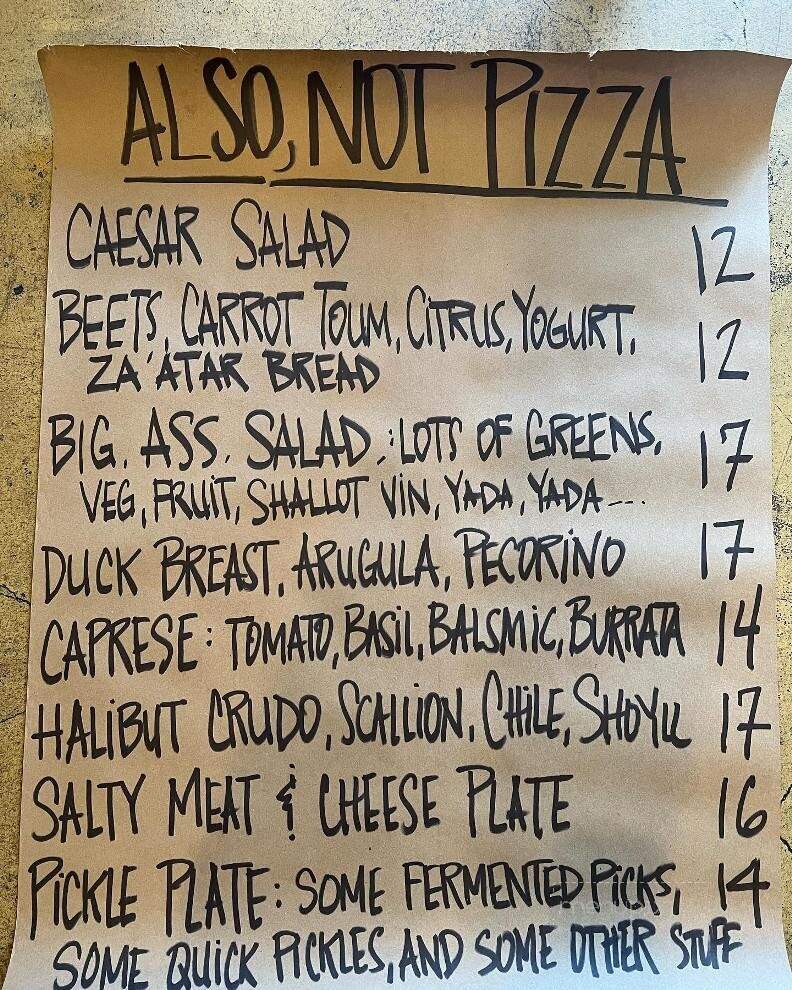 ALSO, NOT PIZZA
CAESAR SALAD 12
BEETS, CARROT TOUM, CITRUS, YOGURT, 12
ZA'ATAR BREAD
BIG. ASS. SALAD: LOTS OF GREENS, 17
VEG, FRUIT, SHALLOT VIN, YADA, YADA....
DUCK BREAST, ARUGULA, PECORINO 17
CAPRESE: TOMATO, BASIL, BALSMIC, BURRATA 14
HALIBUT CRUDO, SCALLION, CHILE, SHOYU 17
SALTY MEAT & CHEESE PLATE 16
PICKLE PLATE: SOME FERMENTED PICKS, 14
SOME QUICK PICKLES, AND SOME OTHER STUFF